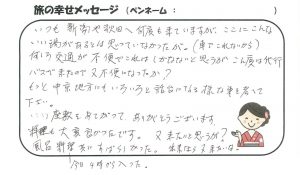 旅の幸せメッセージ (ペンネーム: )
いつも新潟や秋田へ何度も来ていますが、ここにこんな
いい湯があるとは思っていなかったが。(車でこれないから)
何しろ交通が不便でこれは しかたないと思うが この度は代行
バスできたので 又不便になったか?
もっと中京地方にも いろいろと話合になる様な事を考えて
下さい。
いい座敷をあてがって、ありがとうございます
料理も大変良かったです。又来たいと思うが?
風呂 料理 共にすばらしかった。
今日4時から入った。